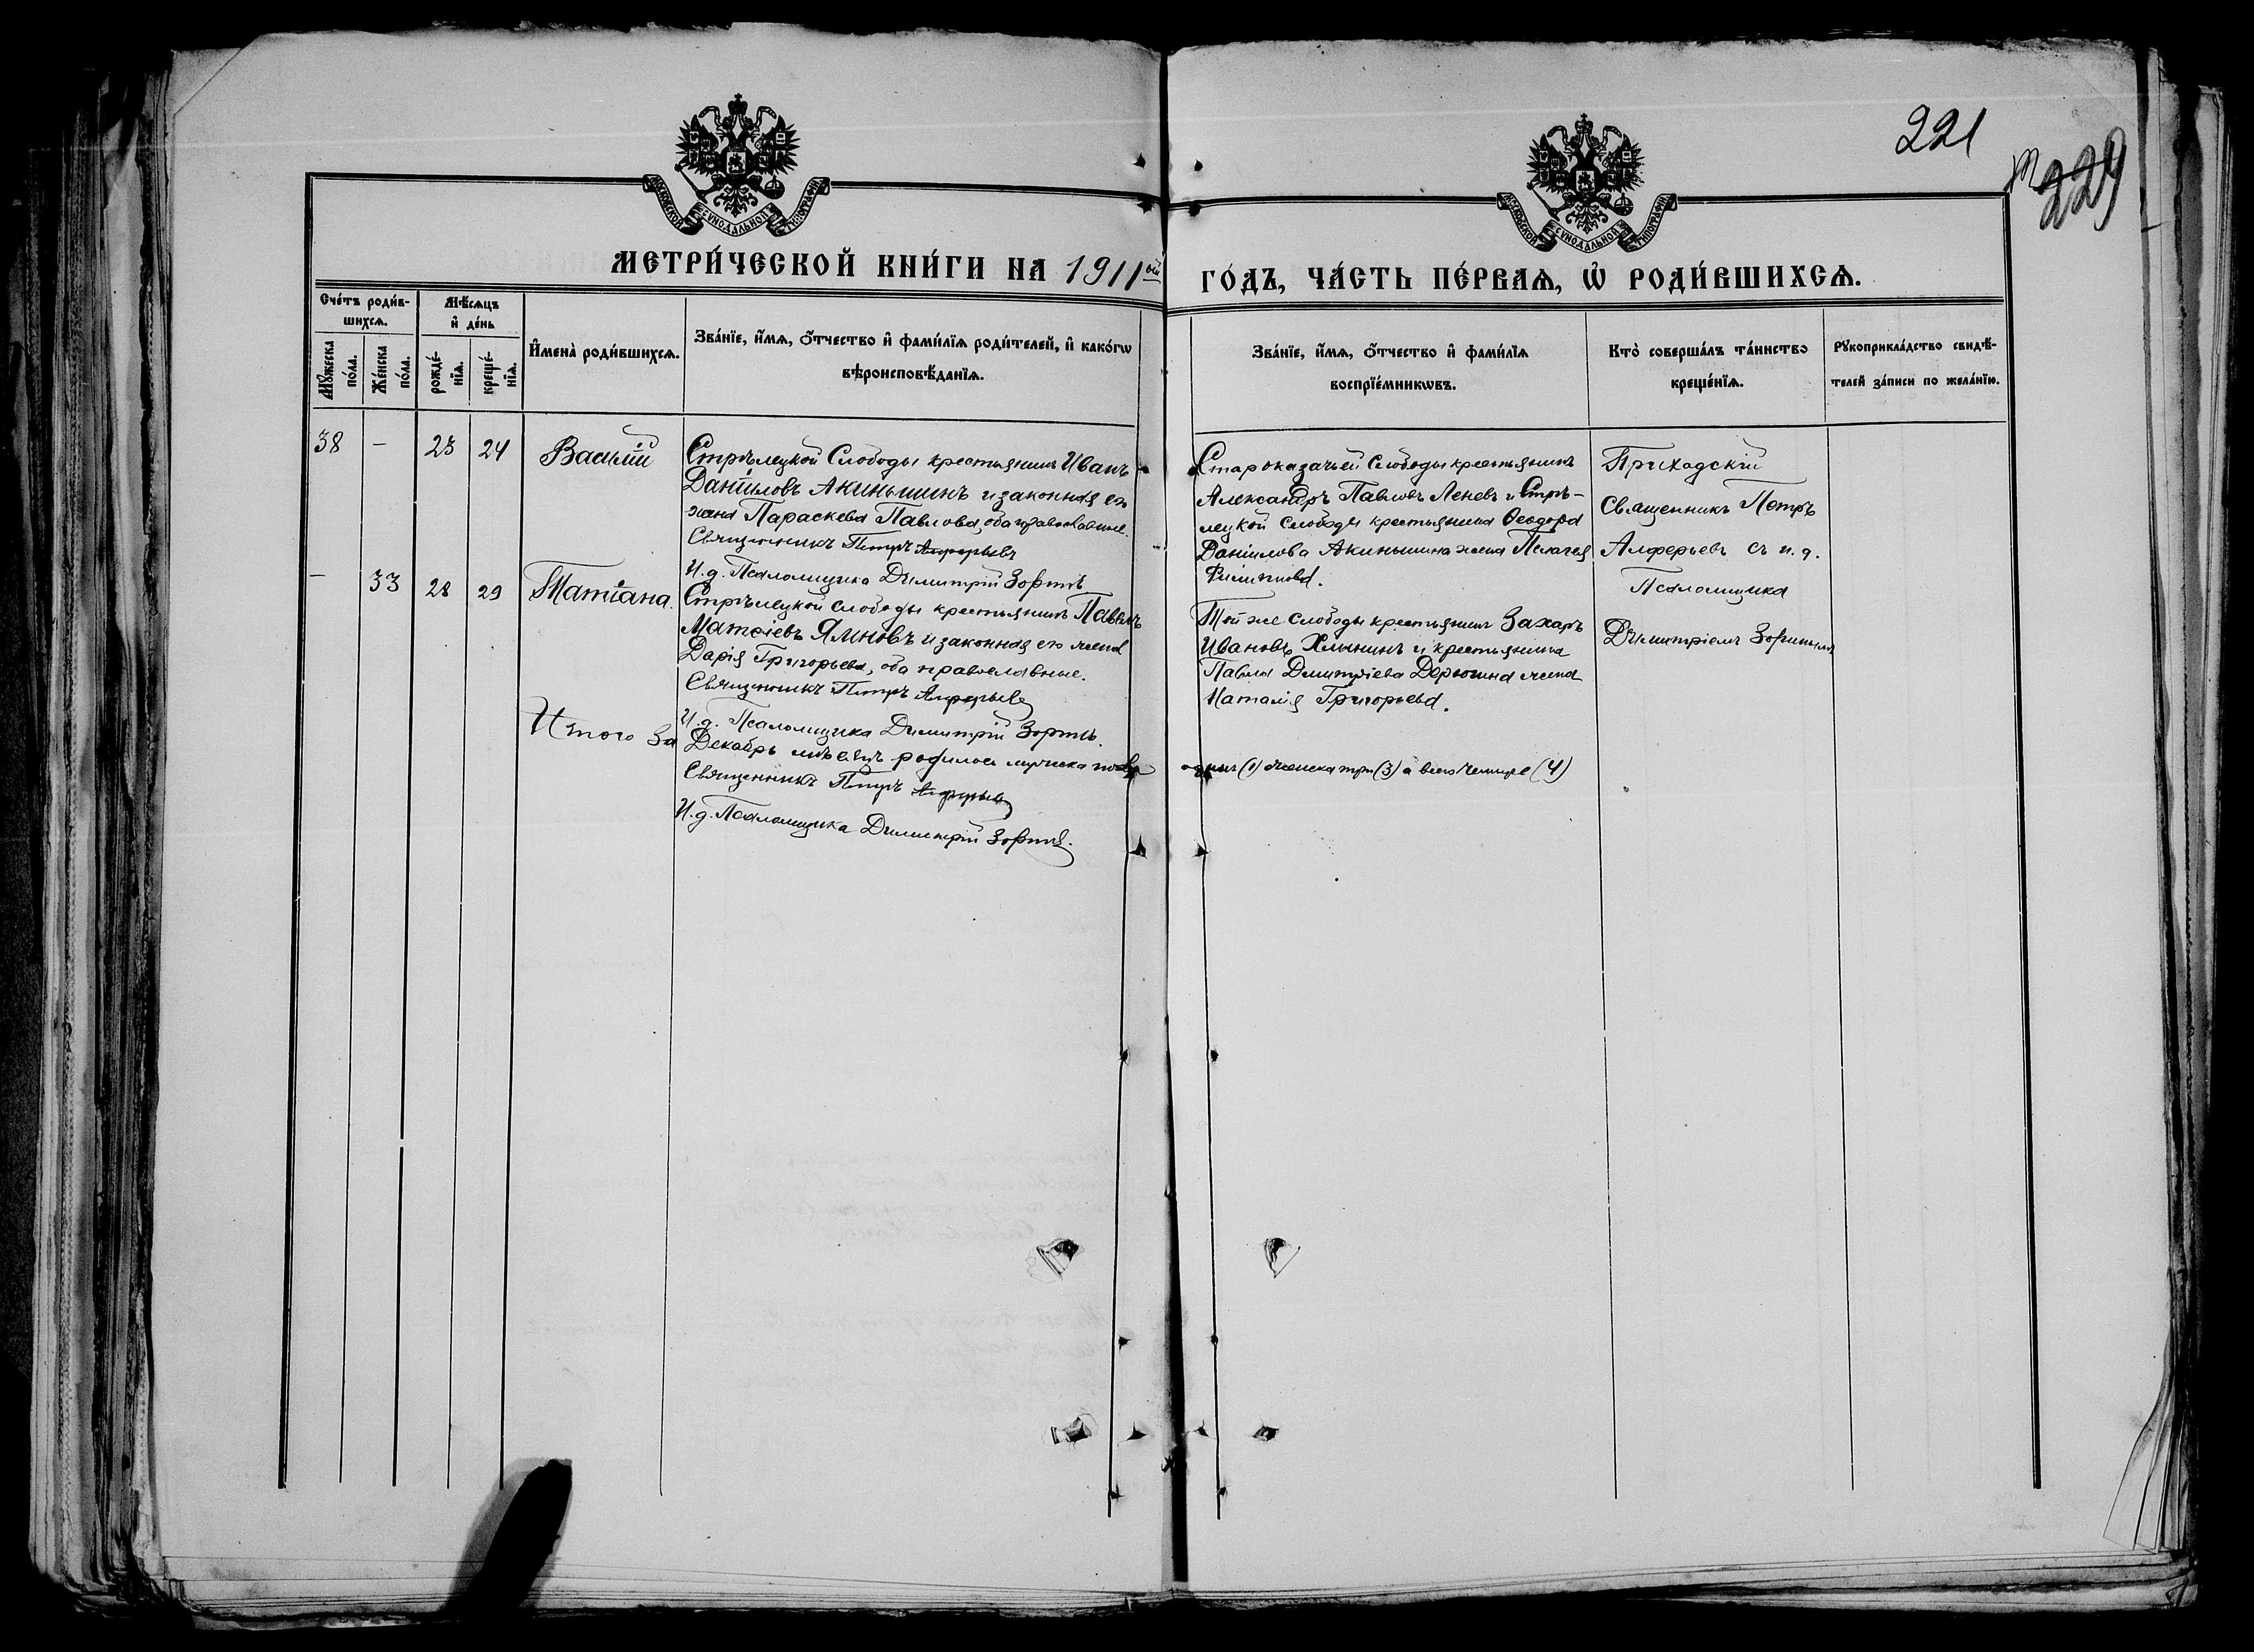 221
229
МОСКОВСКОЙ СѴНОДАЛЬНОЙ ТИПОГРАФІИ
МОСКОВСКОЙ СѴНОДАЛЬНОЙ ТИПОГРАФІИ
МЕТРИ́ЧЕСКОЙ КНИ́ГИ НА 1911ый ГО́ДЪ, ЧА́СТЬ ПЕ́РВАѦ, Ѡ҆ РОДИ́ВШИХСѦ.
Сче́тъ роди́в-
шихсѧ.
Мꙋ́жеска по́ла.
Же́нска по́ла.
Мѣ́сѧцъ
и҆ де́нь
рожде́-
нїѧ.
креще́-
нїѧ.
И҆мена̀ роди́вшихсѧ.
Зва́нїе, и҆́мѧ, ѻ҆́тчество и҆ фами́лїѧ роди́телей, и҆ како́гѡ
вѣроисповѣ́данїѧ.
Зва́нїе, и҆́мѧ, ѻ҆́тчество и҆ фами́лїѧ
воспрїе́мникѡвъ.
Кто̀ соверша́лъ та́инство
креще́нїѧ.
Рꙋкоприкла́дство свидѣ́-
телей за́писи по жела́нїю.
38 — 23 24 Василій
Стрѣлецкой Слободы крестьянинъ Иванъ
Даніиловъ Акиньшинъ и законная его
жена Параскева Павлова, оба православные.
Священникъ Петръ Алферьевъ
И. д. Псаломщика Димитрій Зоринъ
Староказачьей Слободы крестьянинъ
Александръ Павловъ Леневъ и Стрѣ-
лецкой Слободы крестьянина Ѳеодора
Даніилова Акиньшина жена Пелагея
Филиппова.
Приходскій
Священникъ Петръ
Алферьевъ съ и. д.
Псаломщика
Димитріемъ Зоринымъ
— 33 28 29 Татіана.
Стрѣлецкой Слободы крестьянинъ Павелъ
Матѳіевъ Ямновъ и законная его жена
Дарія Григорьева, оба православные.
Священникъ Петръ Алферьевъ
И. д. Псаломщика Димитрій Зоринъ.
Той же Слободы крестьянинъ Захаръ
Ивановъ Хлынинъ и крестьянина
Павла Дмитріева Дерюгина жена
Наталія Григорьева.
Итого за Декабрь мѣсяцъ родилось мужеска пола одинъ (1) женска три (3) а всего четыре (4)
Священникъ Петръ Алферьевъ
И. д. Псаломщика Димитрій Зоринъ.